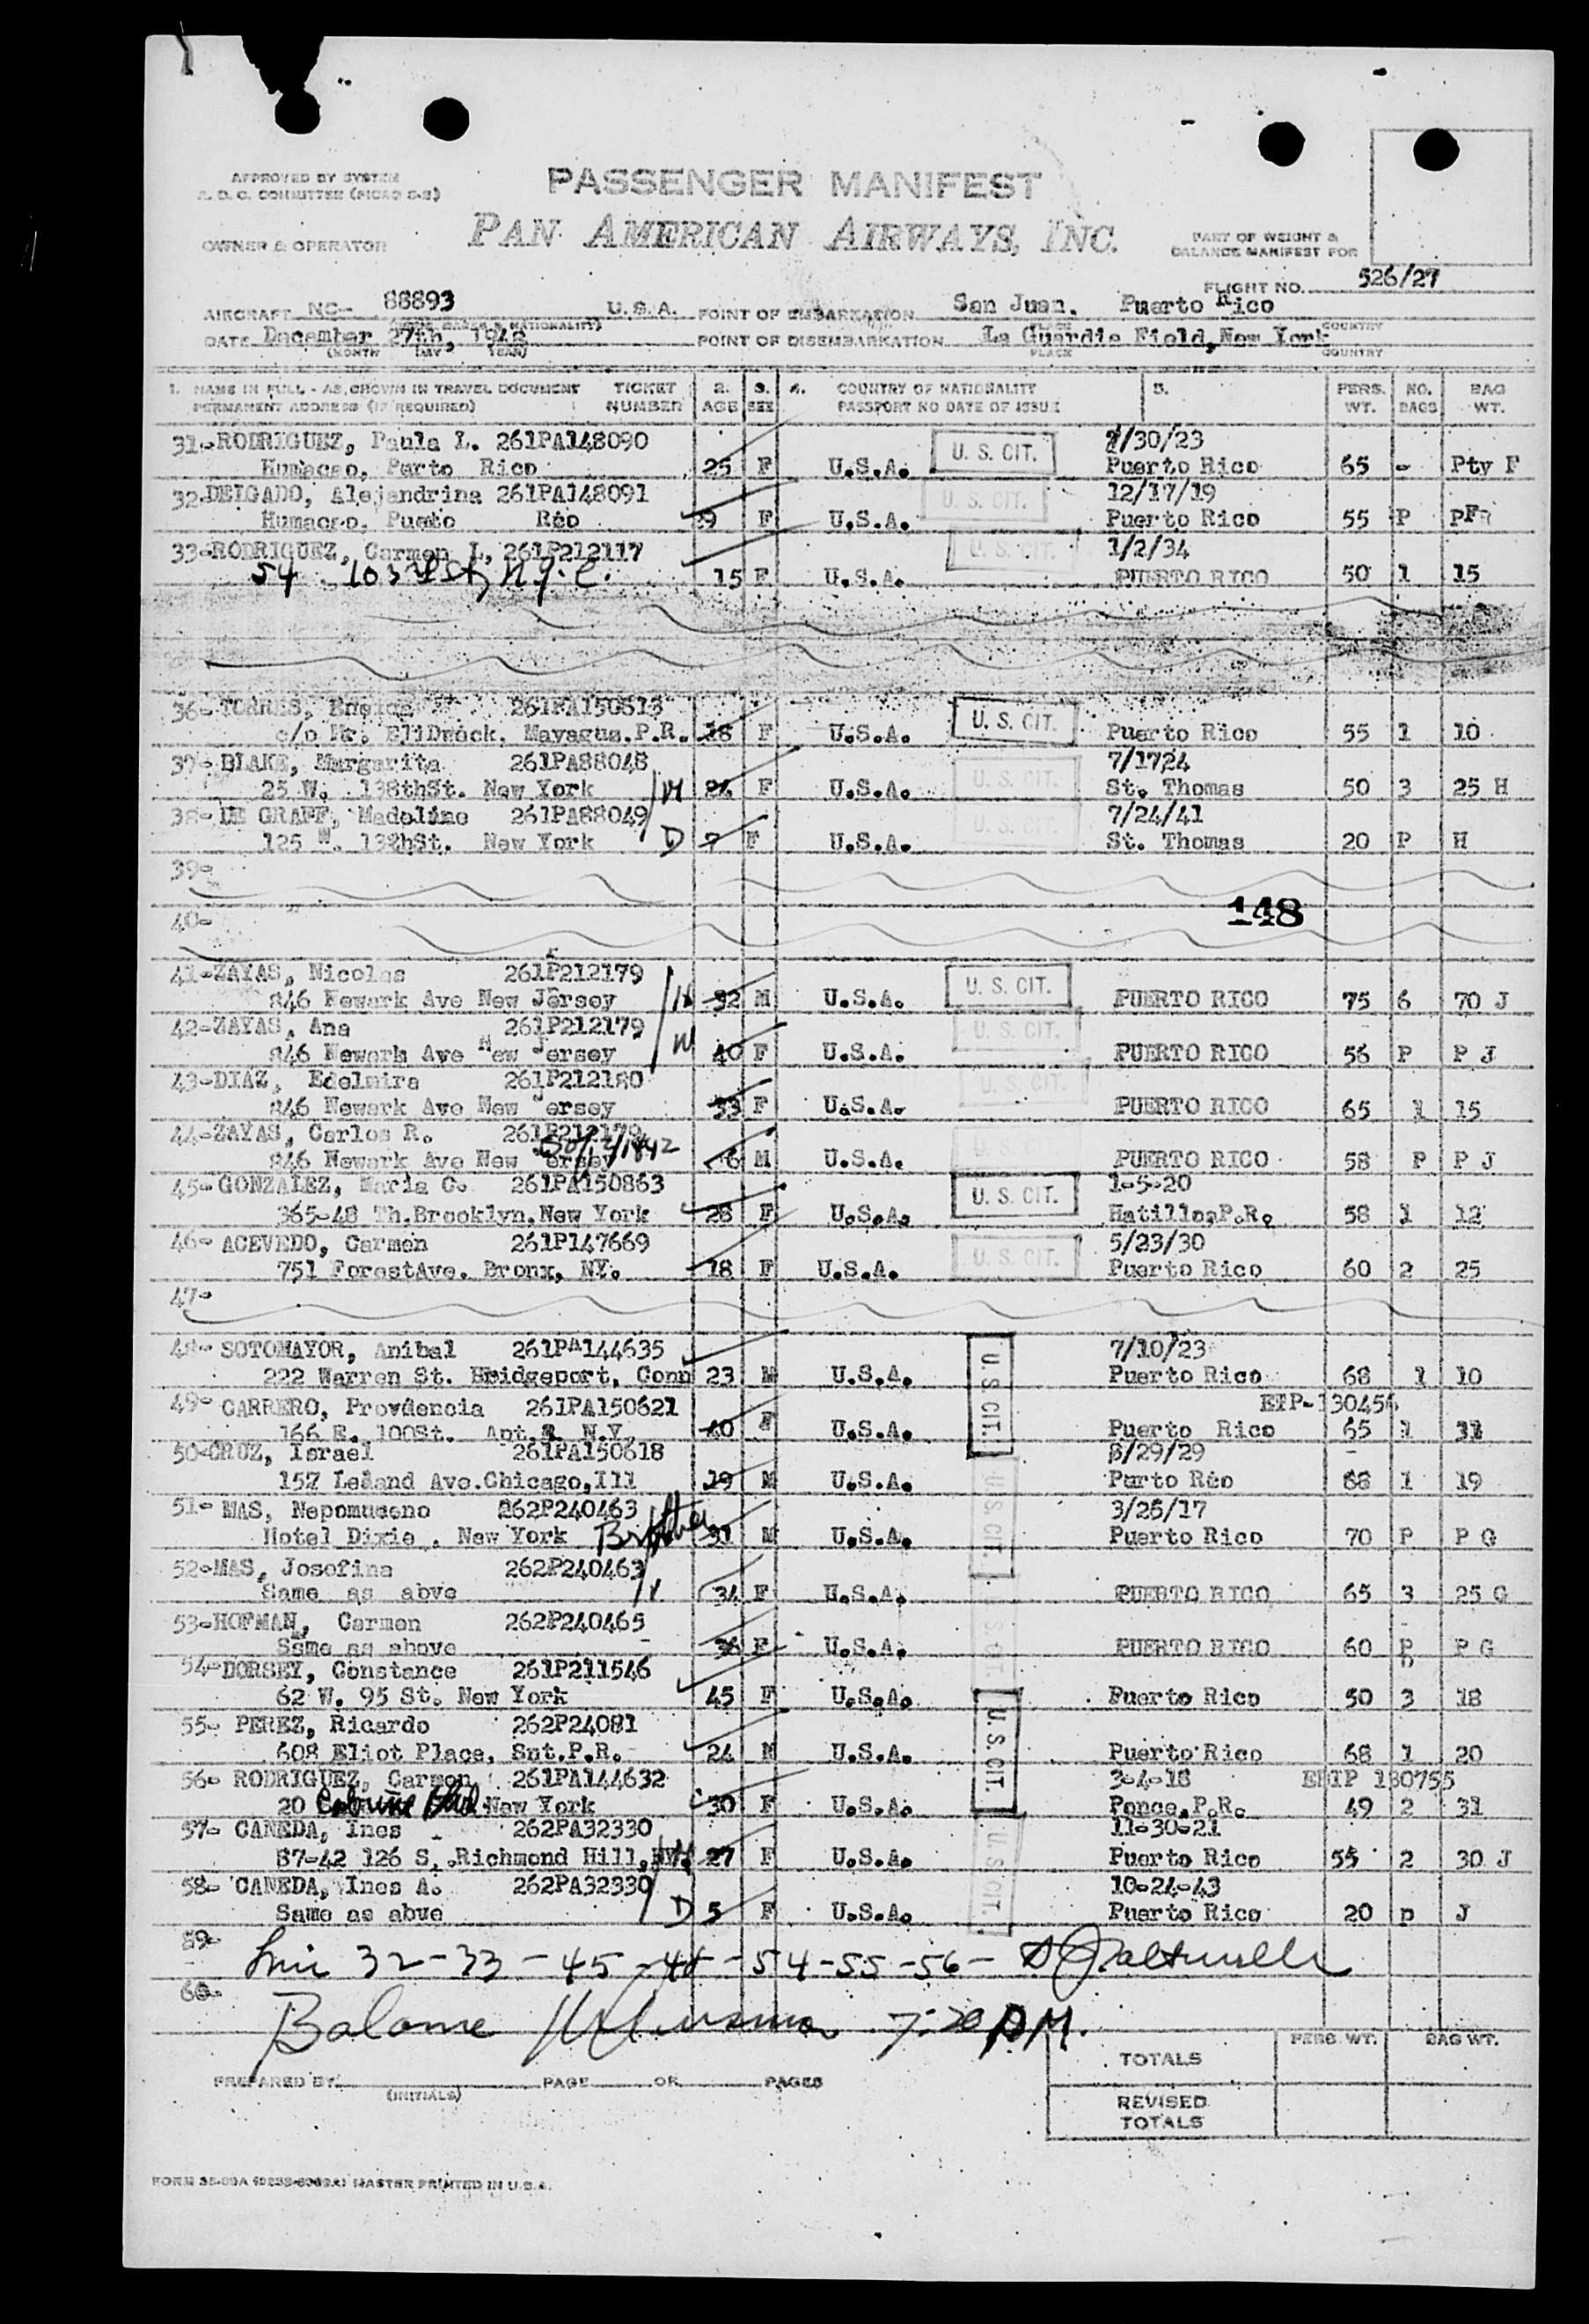 APPROVED BY SYSTEM
PASSENGER MANIFEST
PAN AMERICAN AIRWAYS, INC.
OWNER & OPERATOR
PART OF WEIGHT &
BALANCE MANIFEST FOR
FLIGHT NO. 526/27
AIRCRAFT NC- 88893 U.S.A. POINT OF EMBARKATION San Juan, Puerto Rico
DATE December 27th, 1948 POINT OF DISEMBARKATION La Guardia Field, New York
(MONTH DAY YEAR) PLACE COUNTRY
1. NAME IN FULL - AS SHOWN IN TRAVEL DOCUMENT TICKET 2. 3. 4. COUNTRY OF NATIONALITY 5. PERS. NO. BAG
PERMANENT ADDRESS (IF REQUIRED) NUMBER AGE SEX PASSPORT NO DATE OF ISSUE WT. BAGS WT.
31-RODRIGUEZ, Paula L. 261PA148090 U. S. CIT. /30/23
Humacao, Purto Rico 25 F U.S.A. Puerto Rico 65 - Pty F
32-DELGADO, Alejandrina 261PA148091 U. S. CIT. 12/17/19
Humacao. Puerto Rco 9 F U.S.A. Puerto Rico 55 P
33-RODRIGUEZ, Carmen L. 261P212117 U. S. CIT. 1/2/34
54 103rd St, N.Y.C. 15 F U.S.A. PUERTO RICO 50 1 15
36-TORRES, 261PA150613 U. S. CIT.
c/o Mr. Mayagus.P.R. 18 F U.S.A. Puerto Rico 55 1 10
37-BLAKE, Margarita 261PA88048 7/1724
25 W. 138thSt. New York F U.S.A. U. S. CIT. St. Thomas 50 3 25 H
38-DE GRAFF, Madeline 261PA88049 7/24/41
125 W. 132hSt. New York D 7 F U.S.A. U. S. CIT. St. Thomas 20 P H
39-
40- 148
41-ZAYAS, Nicolas 261P212179 U. S. CIT.
846 Newark Ave New Jersey 32 M U.S.A. PUERTO RICO 75 6 70 J
42-ZAYAS, Ana 261P212179 U. S. CIT.
846 Newark Ave New Jersey 40 F U.S.A. PUERTO RICO 56 P P J
43-DIAZ, Edelmira 261P212180 U. S. CIT.
846 Newark Ave New Jersey 33 F U.S.A. PUERTO RICO 65 1 15
44-ZAYAS, Carlos R. 261P212179
846 Newark Ave New Jersey 6 M U.S.A. PUERTO RICO 58 P P J
45-GONZALEZ, Maria C. 261PA150863 U. S. CIT. 1-5-20
365-48 Th.Brooklyn.New York 28 F U.S.A. Hatillo,P.R. 58 1 12
46- ACEVEDO, Carmen 261P147669 U. S. CIT. 5/23/30
751 ForestAve. Bronx, NY. 18 F U.S.A. Puerto Rico 60 2 25
47-
48- SOTOMAYOR, Anibal 261PA144635 7/10/23
222 Warren St. Bridgeport, Conn 23 M U.S.A. U. S. CIT. Puerto Rico 68 1 10
49- CARRERO, Provdencia 261PA150621 130456
166 E. 100St. Apt. N.Y. 40 F U.S.A. Puerto Rico 65 1
50-CRUZ, Israel 261PA150618 /29/29
Leland Ave.Chicago,Ill 19 M U.S.A. U. S. CIT. Purto Rco 1 19
51- MAS, Nepomuceno 262P240463 3/25/17
Hotel Dixie . New York Brother 31 M U.S.A. Puerto Rico 70 P P G
52-MAS, Josefina 262P240463
Same as abve 34 F U.S.A. PUERTO RICO 65 3 25 G
53-HOFMAN, Carmen 262P240465
Same as above 36 F U.S.A. PUERTO RICO 60 P P G
54-DORSEY, Constance 261P211546
62 W. 95 St. New York 45 F U.S.A. Puerto Rico 50 3 18
55- PEREZ, Ricardo 262P24081
608 Eliot Place, Snt.P.R. 24 M U.S.A. U. S. CIT. Puerto Rico 68 1 20
56- RODRIGUEZ, Carmen 261PA144632 3-4-18 130755
20 Cabrine Blvd New York 30 F U.S.A. Ponce,P.R. 49 2 31
57- CANEDA, Ines 262PA32330 11-30-21
87-42 126 S. Richmond Hill, 27 F U.S.A. U. S. CIT. Puerto Rico 55 2 30 J
58- CANEDA, Ines A. 262PA32330 10-24-43
Same as abve D 5 F U.S.A. Puerto Rico 20 p J
59- 32-33-45-48-54-55-56-
60- Balance 7:20 P.M.
PERS. WT. BAG WT.
TOTALS
PREPARED BY (INITIALS) PAGE OF PAGES
REVISED
TOTALS
MASTER PRINTED IN U.S.A.